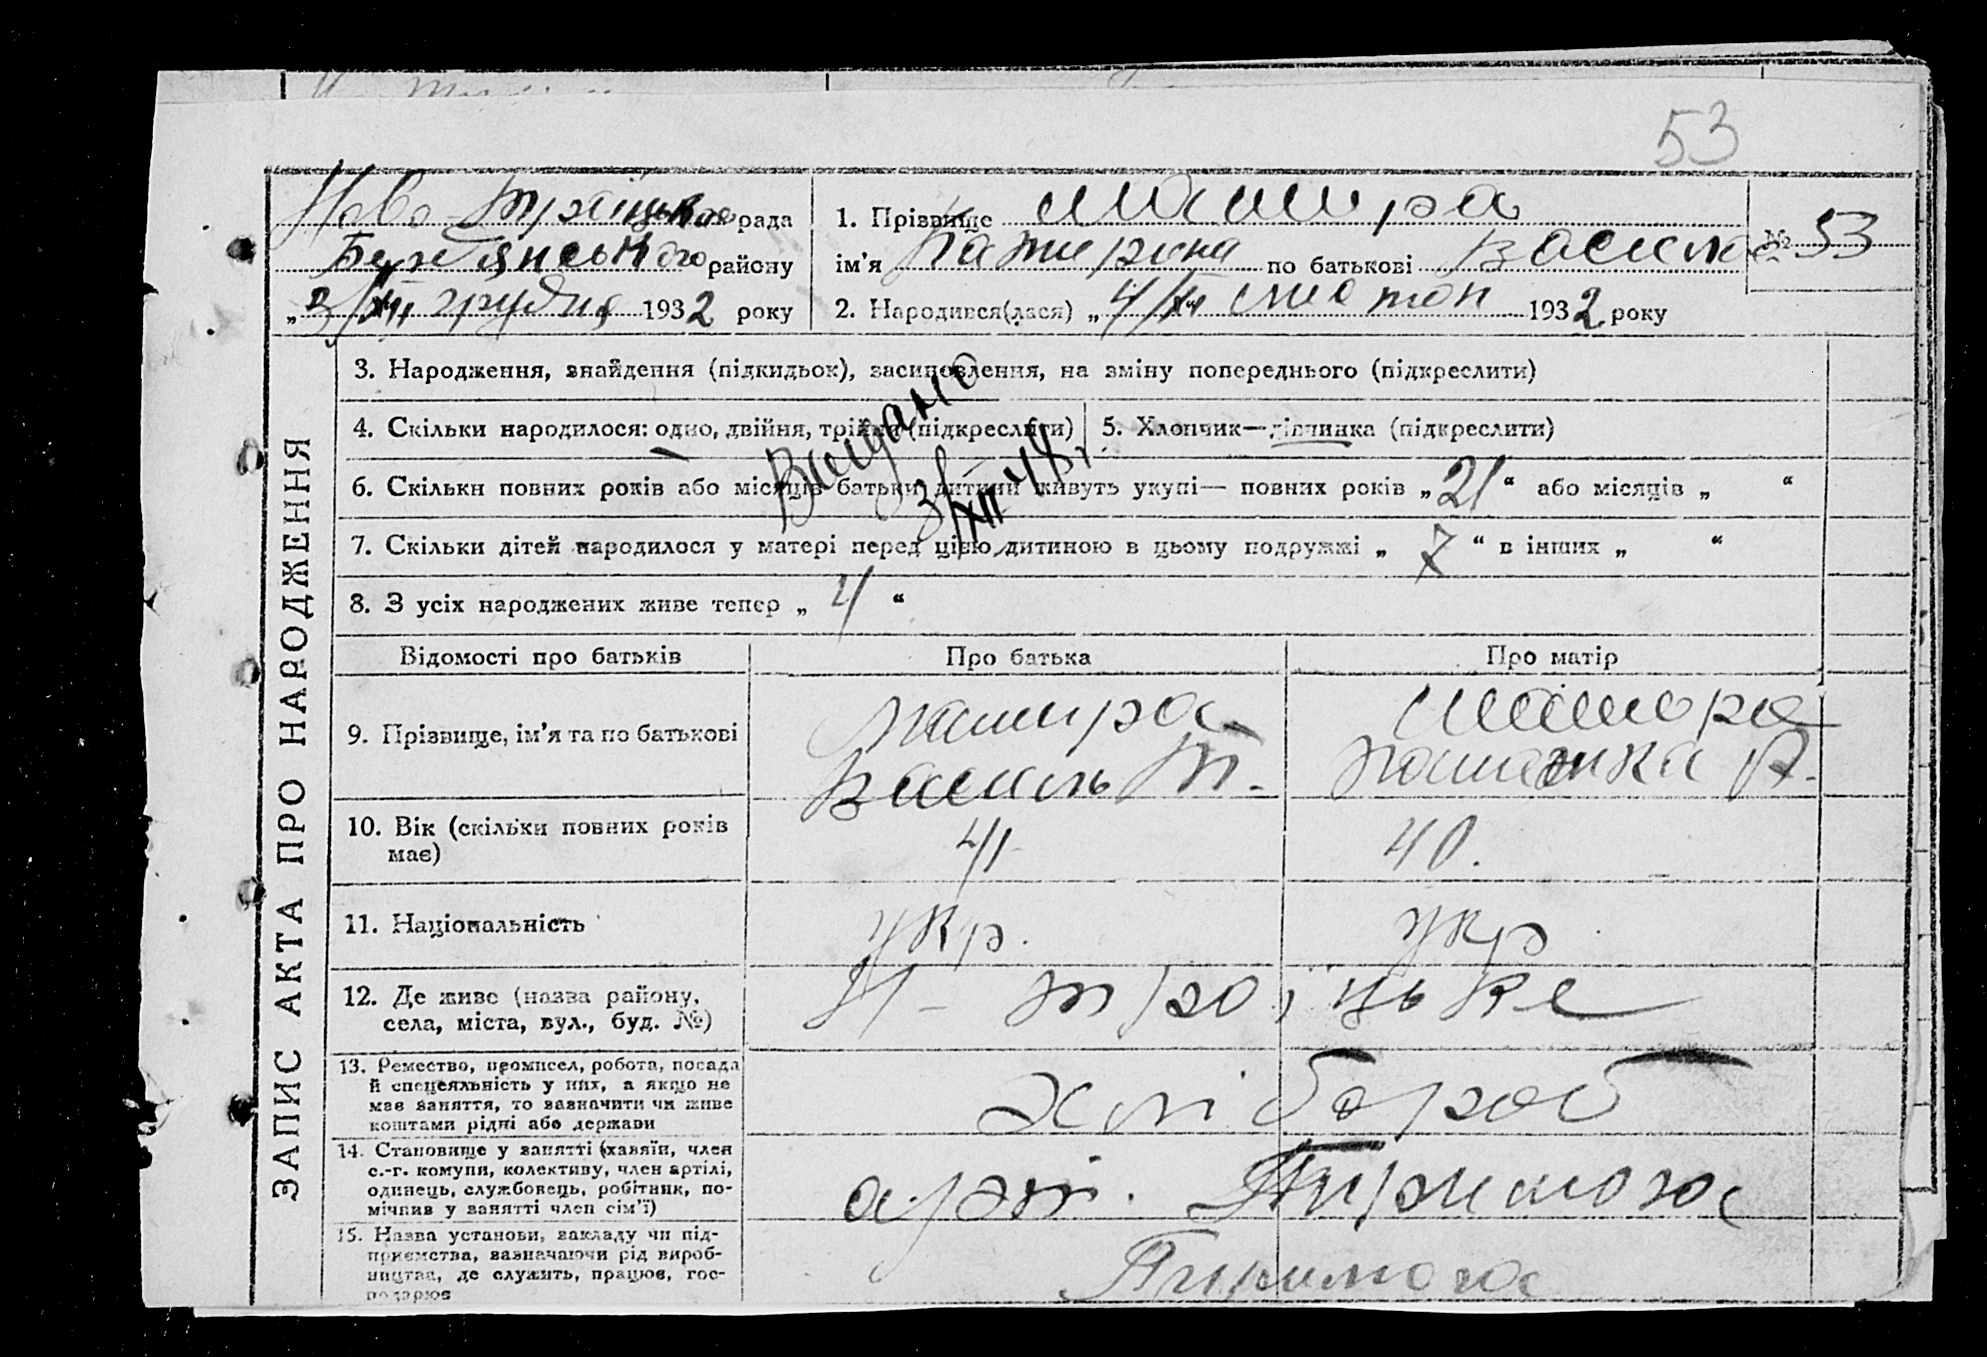 53
Ново-Троїцька рада
Бердянського району
„3/XII грудня 1932 року
1. Прізвище Машира
ім'я Катирина по батькові Василів
2. Народився(лася) „4/XI листоп 1932 року
№ 53
ЗАПИС АКТА ПРО НАРОДЖЕННЯ
3. Народження, знайдення (підкидьок), засиновлення, на зміну попереднього (підкреслити)
4. Скільки народилося: одно, двійня, трійня (підкреслити)
5. Хлопчик—дівчинка (підкреслити)
6. Скільки повних років або місяців батьки дитини живуть укупі— повних років „21“ або місяців „ “
7. Скільки дітей народилося у матері перед цією дитиною в цьому подружжі „7“ в інших „ “
8. З усіх народжених живе тепер „4“
Видано
3/XII 48 г.
Відомості про батьків
Про батька
Про матір
9. Прізвище, ім'я та по батькові
Машира
Василь Т.
Машира
10. Вік (скільки повних років
має)
41
40.
11. Національність
укр.
укр.
12. Де живе (назва району,
села, міста, вул., буд. №)
Н-Троїцьке
13. Ремество, промисел, робота, посада
й спецеяльність у них, а якщо не
має заняття, то зазначити чи живе
коштами рідні або держави
хлібороб
14. Становище у занятті (хазяїн, член
с.-г. комуни, колективу, член артілі,
одинець, службовець, робітник, по-
мічник у занятті член сім'ї)
арт. Перемога
15. Назва установи, закладу чи під-
приємства, зазначаючи рід вироб-
ництва, де служить, працює, гос-
подарює
Перемога